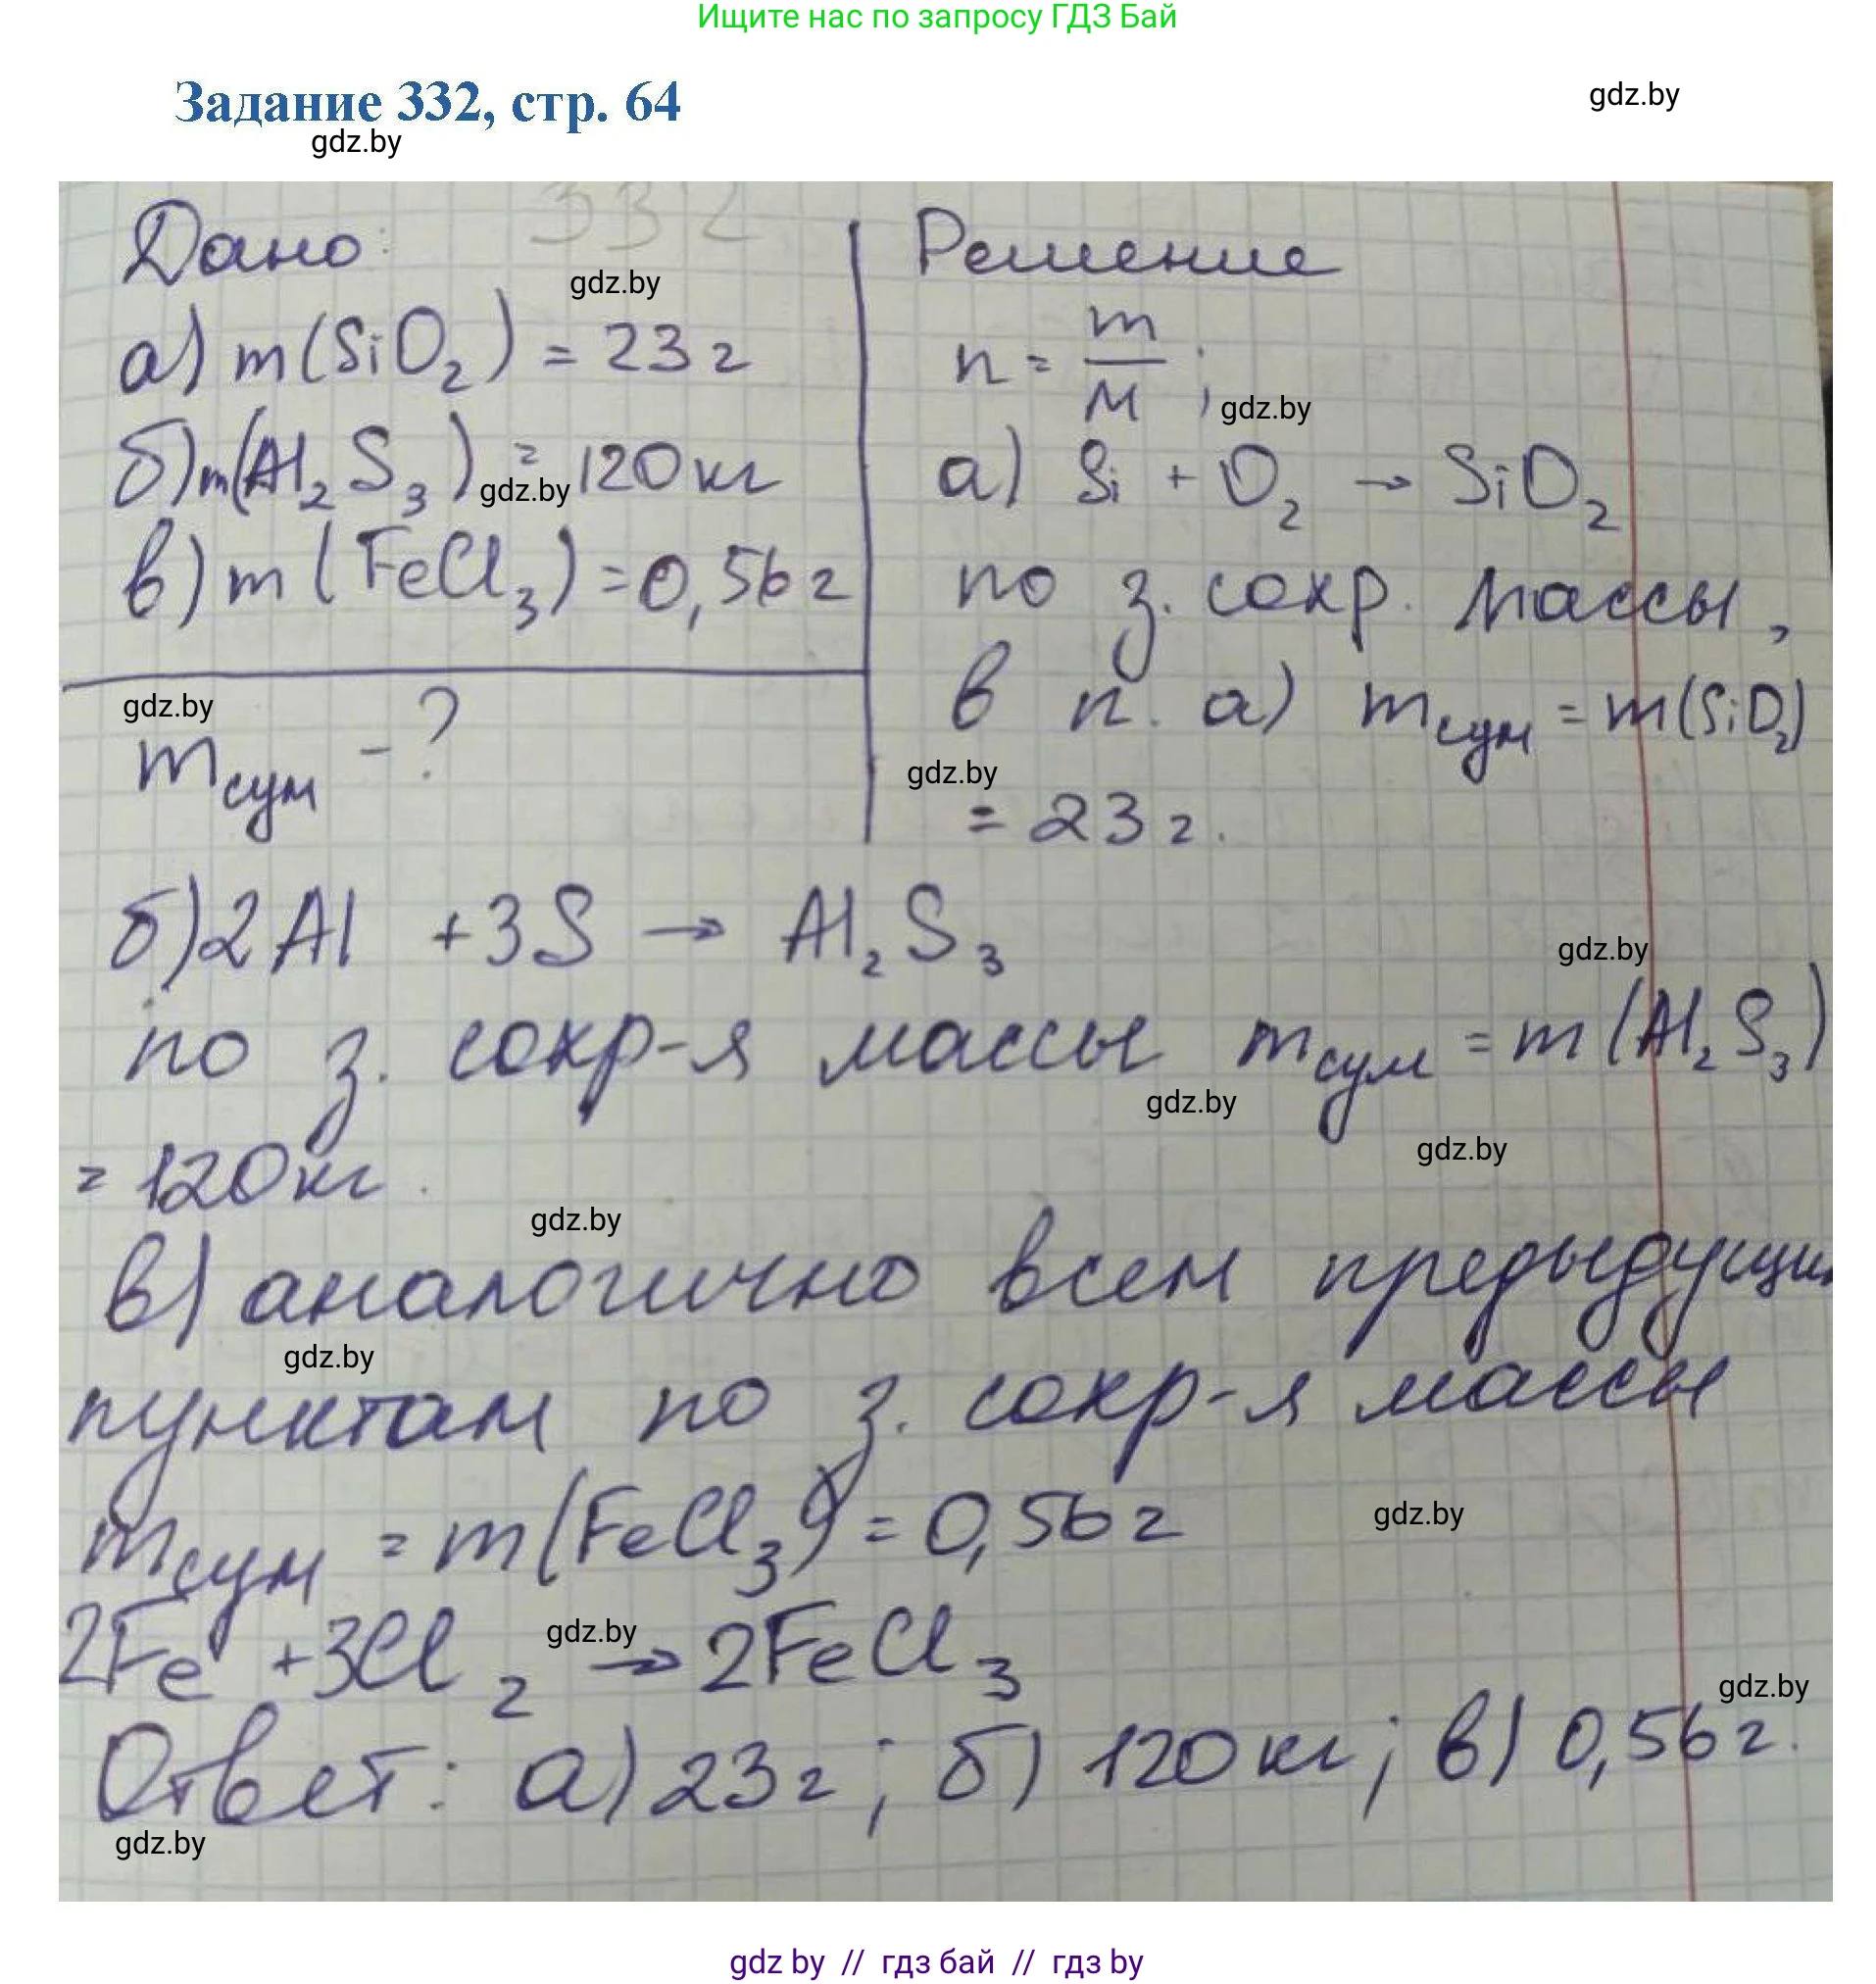 Ищите нас по запросу ГДЗ Бай
Задание 332, стр. 64
gdz.by
gdz.by
332
Дано:
gdz.by
а) m(SiO₂) = 23 г
б) m(Al₂S₃) = 120 кг
gdz.by
в) m(FeCl₃) = 0,56 г
gdz.by
mсум - ?
Решение
n = m/M;
gdz.by
а) Si + O₂ → SiO₂
по з. сохр. массы,
в п. а) mсум = m(SiO₂)
gdz.by
= 23 г.
б) 2Al + 3S → Al₂S₃
gdz.by
по з. сохр-я массы mсум = m(Al₂S₃)
gdz.by
gdz.by
= 120 кг.
gdz.by
в) аналогично всем предыдущим
gdz.by
пунктам по з. сохр-я массы
mсум = m(FeCl₃) = 0,56 г
gdz.by
2Fe + 3Cl₂ → 2FeCl₃
gdz.by
gdz.by
Ответ: а) 23 г; б) 120 кг; в) 0,56 г.
gdz.by
gdz by // гдз бай // гдз by